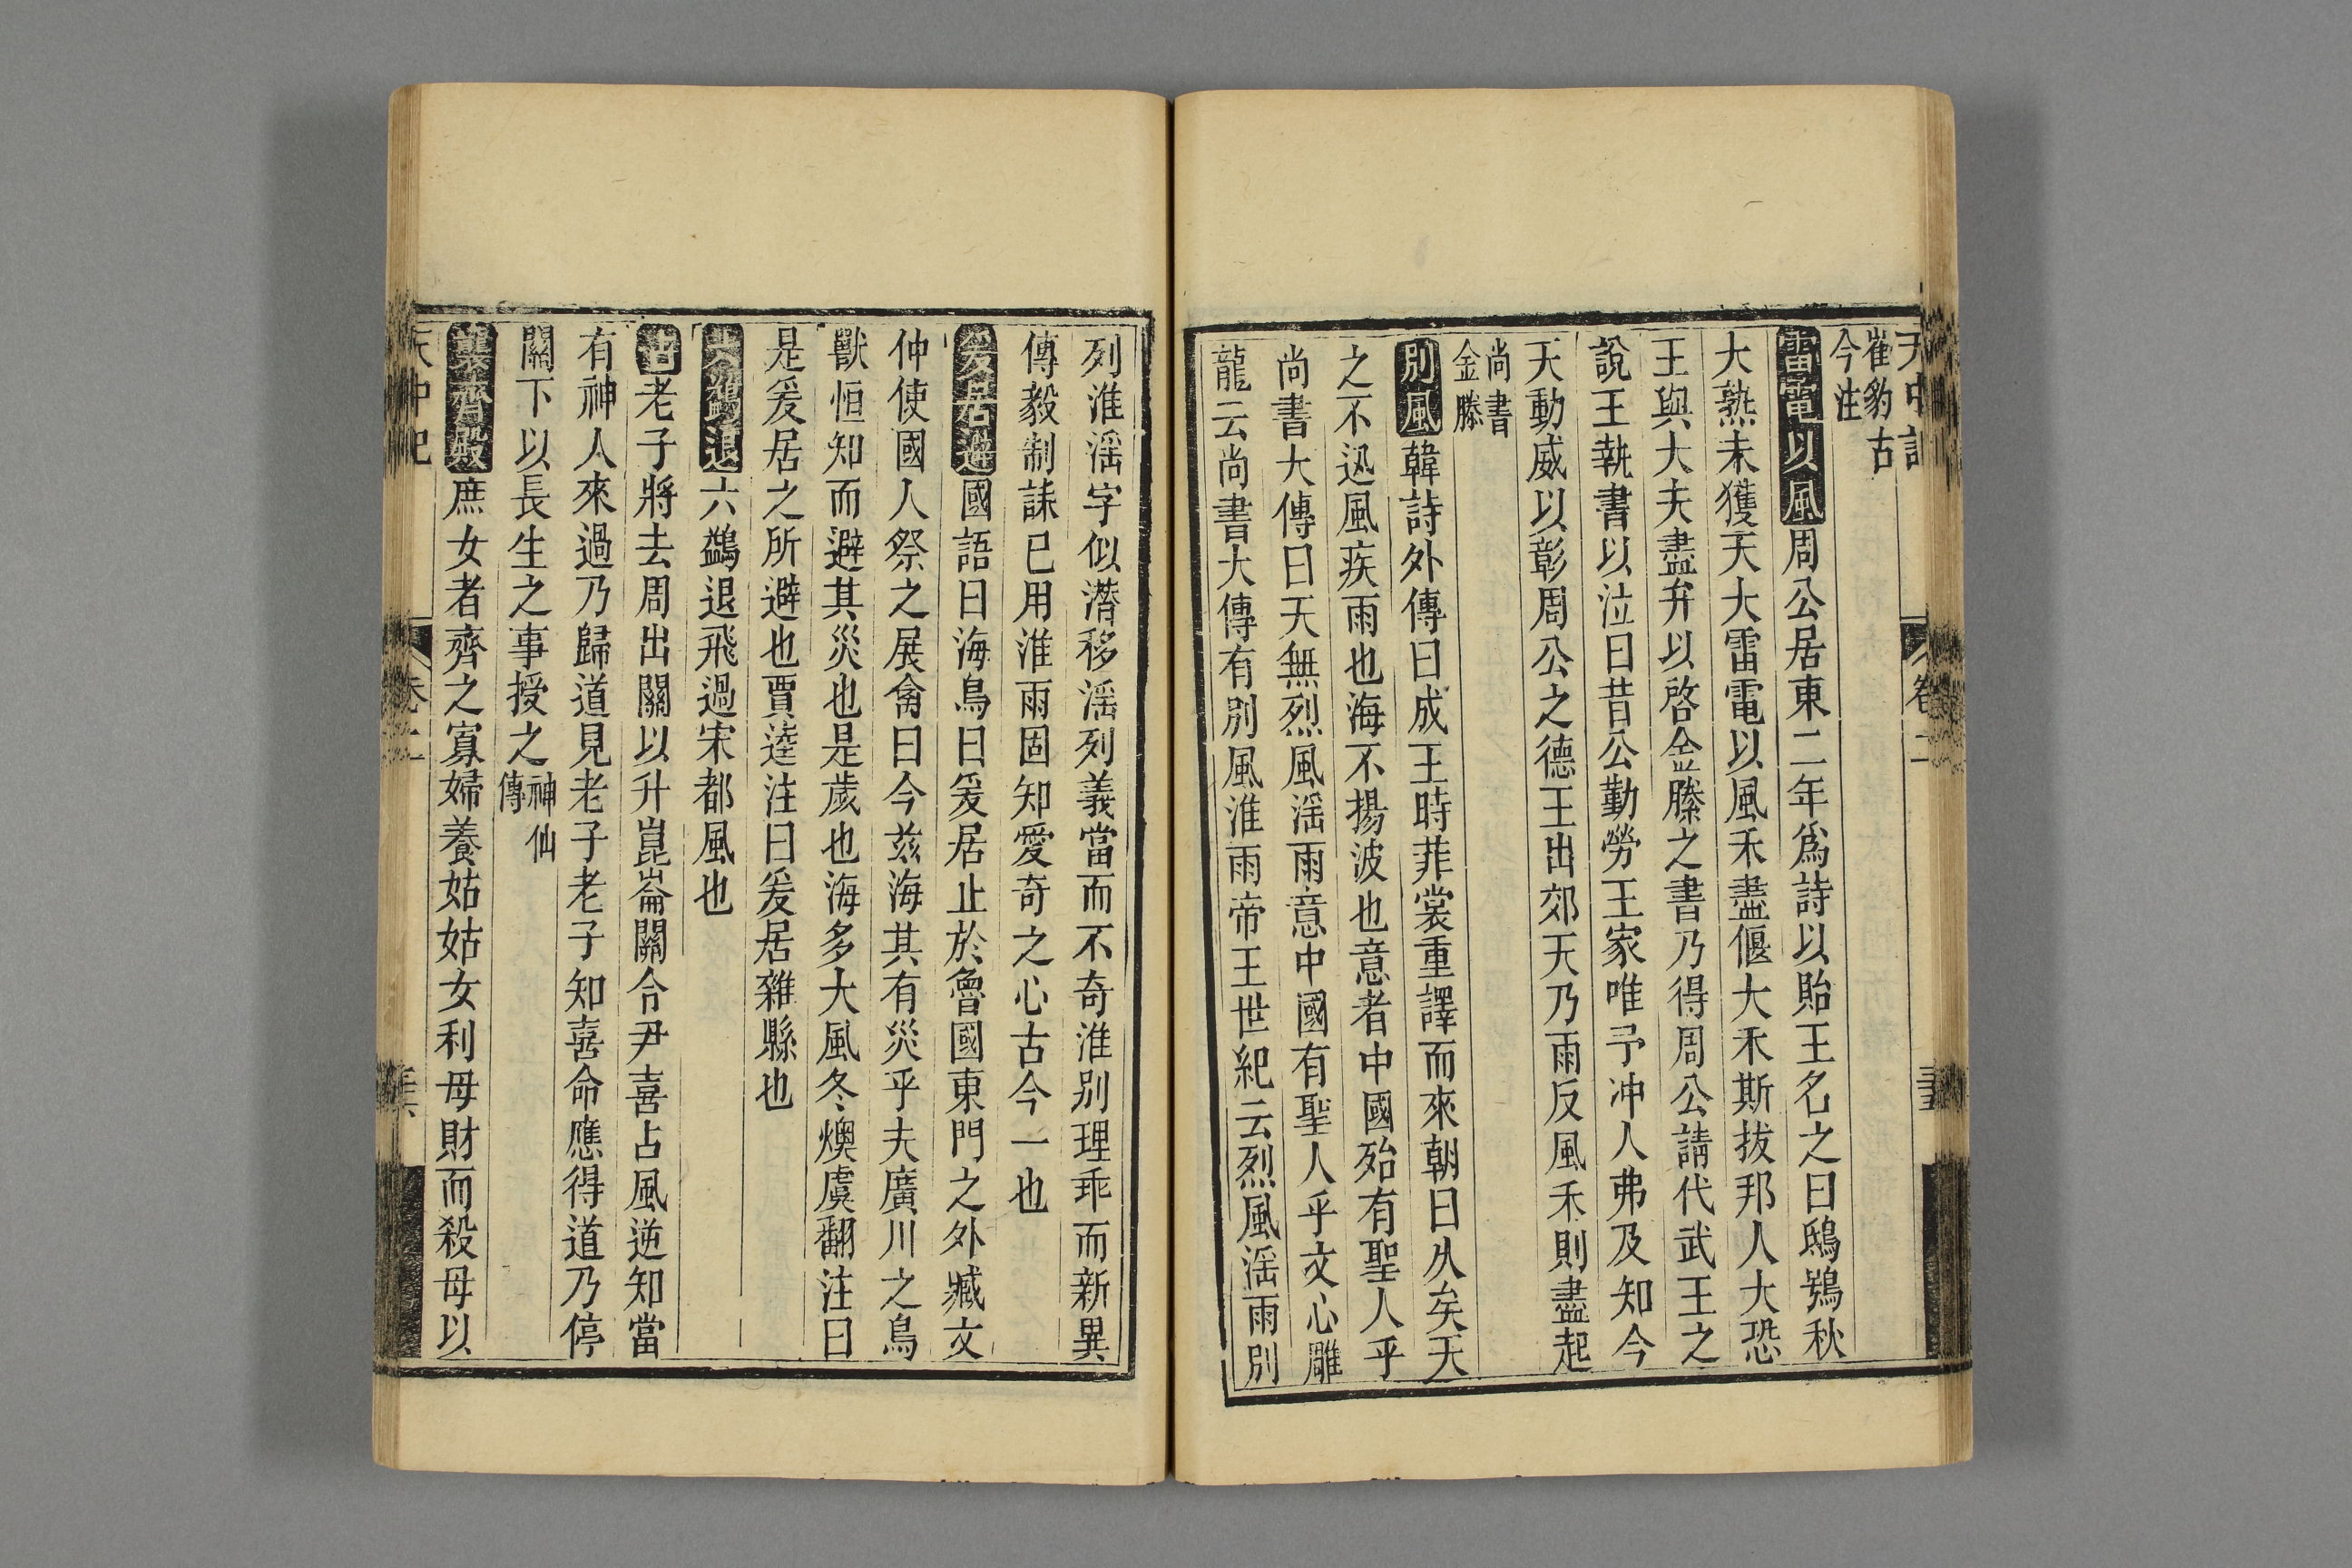 崔豹古
今注
雷電以風周公居東二年爲詩以貽王名之曰鴟鴞秋
大熟未獲天大雷電以風禾盡偃大木斯拔邦人大恐
王與大夫盡弁以啓金縢之書乃得周公請代武王之
說王執書以泣曰昔公勤勞王家唯予冲人弗及知今
天動威以彰周公之德王出郊天乃雨反風禾則盡起
尚書
金縢
別風韓詩外傳曰成王時菲裳重譯而來朝曰久矣天
之不迅風疾雨也海不揚波也意者中國殆有聖人乎
尚書大傳曰天無烈風滛雨意中國有聖人乎文心雕
龍云尚書大傳有別風淮雨帝王世紀云烈風滛雨別
列淮滛字似潛移滛列義當而不奇淮別理乖而新異
傳毅制誄已用淮雨固知愛奇之心古今一也
爰居避國語曰海鳥曰爰居止於魯國東門之外臧文
仲使國人祭之展禽曰今兹海其有災乎夫廣川之鳥
獸恒知而避其災也是歲也海多大風冬煗虞翻注曰
是爰居之所避也賈逵注曰爰居雜縣也
六鷁退六鷁退飛過宋都風也
占老子將去周出關以升崑崙關令尹喜占風逆知當
有神人來過乃歸道見老子老子知喜命應得道乃停
關下以長生之事授之神仙
傳
襲齊殿庶女者齊之寡婦養姑姑女利母財而殺母以
天中記
卷二